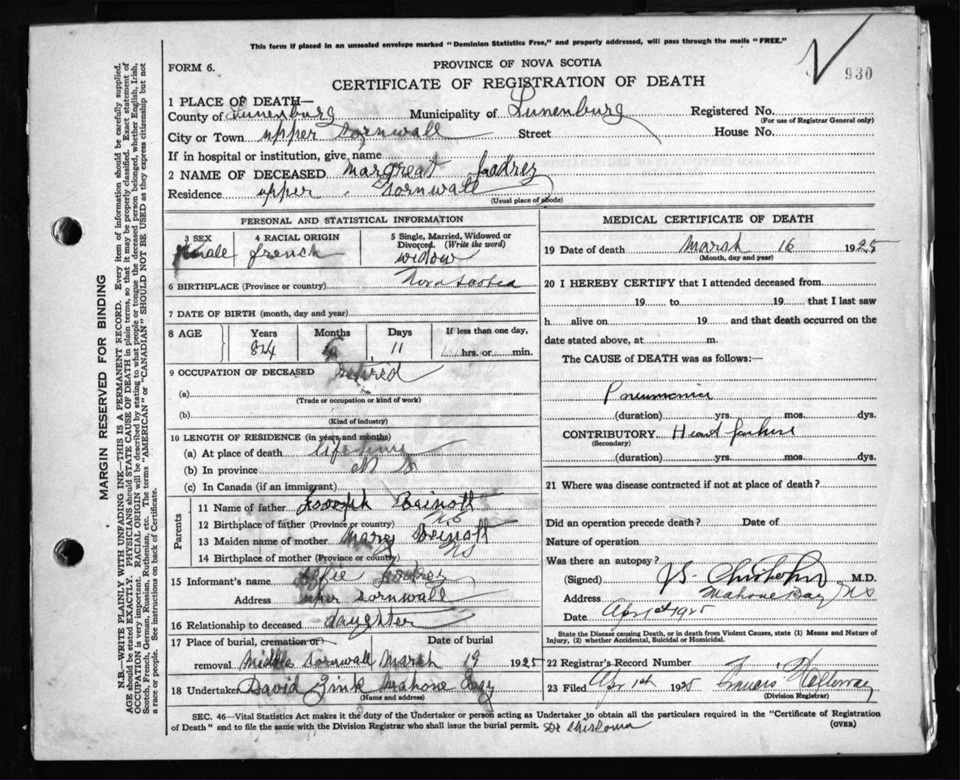 This form if placed in an unsealed envelope marked "Dominion Statistics Free," and properly addressed, will pass through the mails "FREE."
FORM 6.
PROVINCE OF NOVA SCOTIA
930
CERTIFICATE OF REGISTRATION OF DEATH
1 PLACE OF DEATH—
County of Lunenburg Municipality of Lunenburg Registered No.
(For use of Registrar General only)
City or Town upper Cornwall Street House No.
If in hospital or institution, give name
2 NAME OF DECEASED Margreat
Residence upper Cornwall
(Usual place of abode)
PERSONAL AND STATISTICAL INFORMATION
3 SEX 4 RACIAL ORIGIN 5 Single, Married, Widowed or Divorced. (Write the word)
female french widow
6 BIRTHPLACE (Province or country) Nova Scotia
7 DATE OF BIRTH (month, day and year)
8 AGE Years Months Days If less than one day,
11 hrs. or min.
9 OCCUPATION OF DECEASED retired
(a)
(Trade or occupation or kind of work)
(b)
(Kind of industry)
10 LENGTH OF RESIDENCE (in years and months)
(a) At place of death
(b) In province N S
(c) In Canada (if an immigrant)
Parents
11 Name of father Joseph
12 Birthplace of father (Province or country) NS
13 Maiden name of mother Mary
14 Birthplace of mother (Province or country) NS
15 Informant's name
Address uper Cornwall
16 Relationship to deceased daughter
17 Place of burial, cremation or removal Date of burial
Middle Cornwall March 19 1925
18 Undertaker David Zink Mahone Bay
(Name and address)
MEDICAL CERTIFICATE OF DEATH
19 Date of death Marsh 16 1925
(Month, day and year)
20 I HEREBY CERTIFY that I attended deceased from
19 to 19 that I last saw
h alive on 19 and that death occurred on the
date stated above, at m.
The CAUSE of DEATH was as follows:—
Pneumonia
(duration) yrs. mos. dys.
CONTRIBUTORY Heart failure
(Secondary)
(duration) yrs. mos. dys.
21 Where was disease contracted if not at place of death?
Did an operation precede death? Date of
Nature of operation
Was there an autopsy?
(Signed) M.D.
Address Mahone Bay NS
Date Apr 1st 1925
State the Disease causing Death, or in death from Violent Causes, state (1) Means and Nature of
Injury, (2) whether Accidental, Suicidal or Homicidal.
22 Registrar's Record Number
23 Filed Apr 1st 1925 Francis
(Division Registrar)
SEC. 46—Vital Statistics Act makes it the duty of the Undertaker or person acting as Undertaker to obtain all the particulars required in the "Certificate of Registration
of Death" and to file the same with the Division Registrar who shall issue the burial permit. (OVER)
MARGIN RESERVED FOR BINDING
N.B.—WRITE PLAINLY WITH UNFADING INK—THIS IS A PERMANENT RECORD. Every item of information should be carefully supplied.
AGE should be stated EXACTLY. PHYSICIANS should STATE CAUSE OF DEATH in plain terms, so that it may be properly classified. Exact statement of
OCCUPATION is very important. RACIAL ORIGIN will be described by stating to what people or tongue the deceased person belonged, whether English, Irish,
Scotch, French, German, Russian, Ruthenian, etc. The terms "AMERICAN" or "CANADIAN" SHOULD NOT BE USED as they express citizenship but not
a race or people. See instructions on back of Certificate.